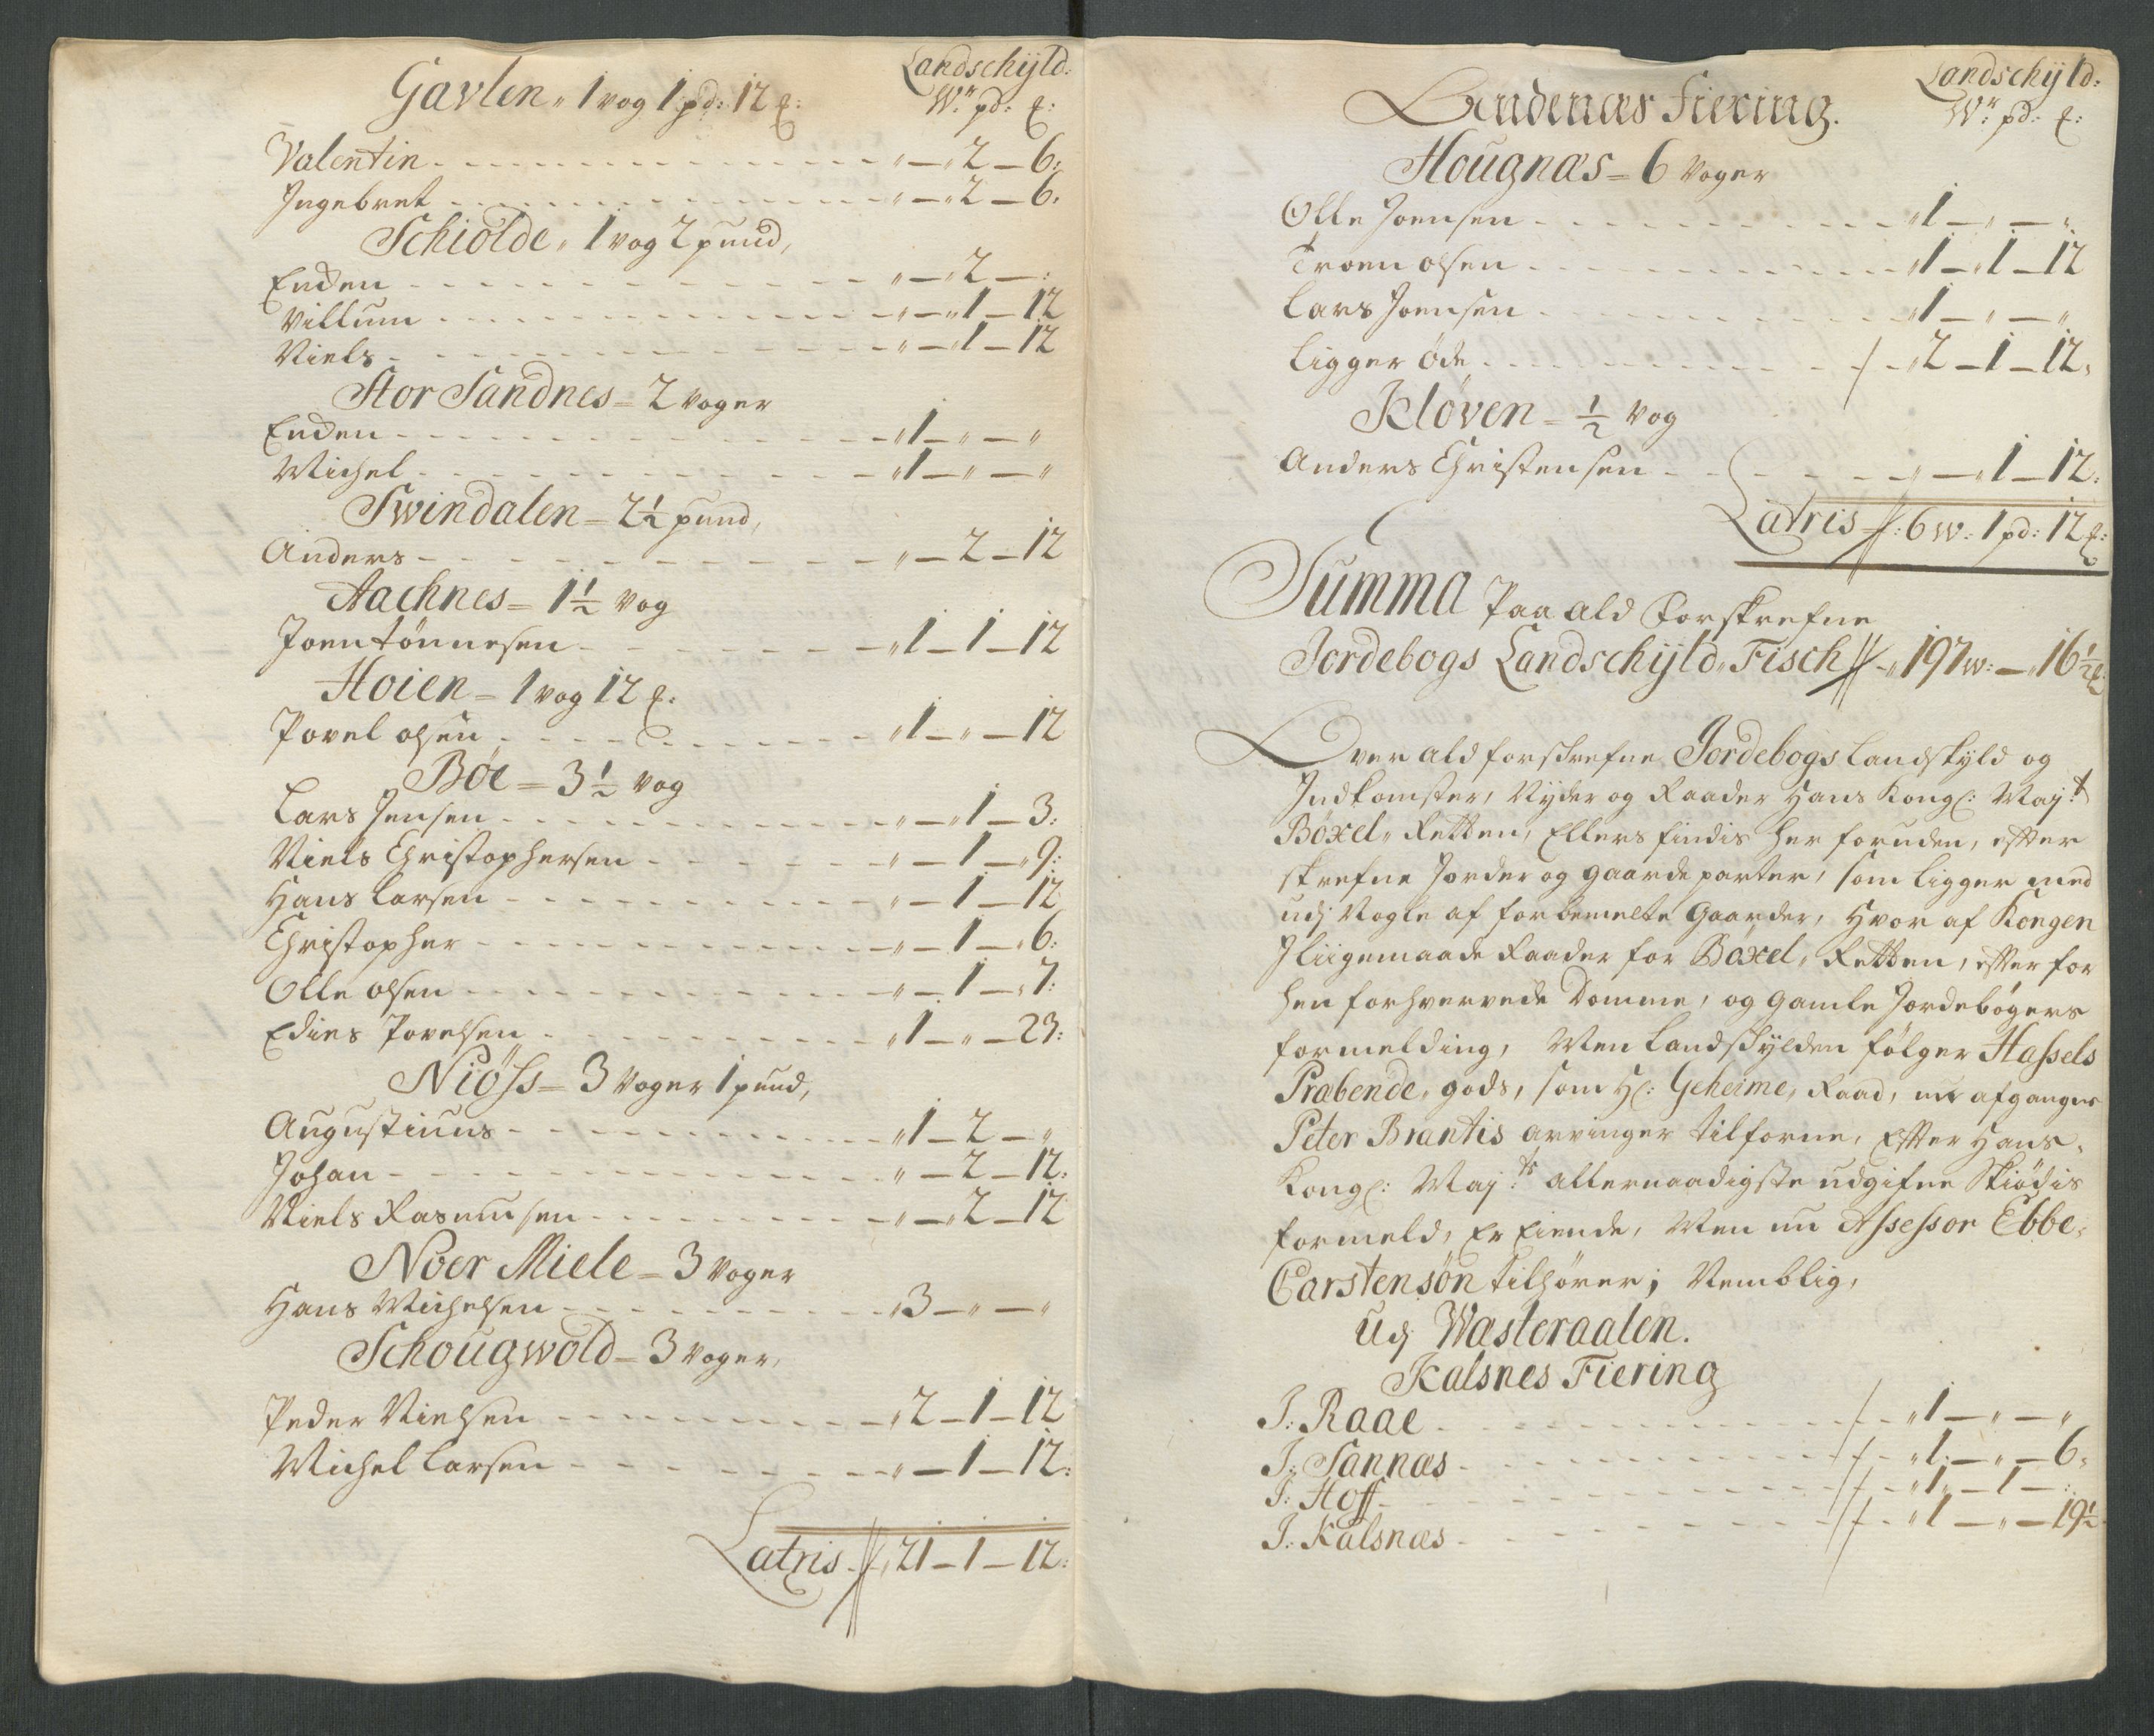 Landschÿld:
Gavlen, 1 vog 1 pd: 12 ℔: W: pd: ℔:
Valentin - - - " — 2 — 6:
Ingebret - - - " — 2 — 6:
Schiølde, 1 vog 2 pund,
Enden - - - " — 2 — :
Villum - - - " — 1 — 12
Niels - - - " — 1 — 12
Stor Sandnes = 2 Voger
Enden - - - 1 — " — "
Michel - - - 1 — " — "
Swindalen = 2½ pund,
Anders - - - " — 2 — 12
Aachnes = 1½ Vog
Joen tönnesen - - - 1 — 1 — 12
Hoien = 1 vog 12 ℔:
Povel olsen - - - 1 — " — 12
Bøe = 3½ Vog
Lars Jensen - - - " — 1 — 3:
Niels Christophersen - - - " — 1 — 9:
Hans Larsen - - - " — 1 — 12
Christopher - - - " — 1 — 6:
Olle olsen - - - " — 1 — 7:
Edies Povelsen - - - 1 — " — 23:
Niöss = 3 Voger 1 pund,
Augustinus - - - 1 — 2 — "
Johan - - - " — 2 — 12:
Niels Rasmusen - - - " — 2 — 12
Noer Miele = 3 Voger
Hans Michelsen - - - 3 — " — "
Schougwold = 3 Voger,
Peder Nielsen - - - 2 — 1 — 12
Michel Larsen - - - " — 1 — 12:
Latris - 21 — 1 — 12:
Landschÿld:
Fiering. W: pd: ℔:
Hougnæs = 6 Voger
Olle Joensen - - - 1 — " — "
Troen olsen - - - 1 — 1 — 12
Lars Joensen - - - 1 — " — "
Ligger Øde - - - 2 — 1 — 12,
Kløven = ½ Vog
Anders Christensen - - - " — 1 — 12:
Latris : 6 W: 1 pd: 12 ℔:
Summa Paa ald Forskrefne
Jordebogs Landschÿld, Fisch - 197 W: — 16½ ℔
Over ald forskrefne Jordebogs Landskyld og
Indkomster, Nyder og Raader Hans Kongl: Maÿ:t
Böxel, Retten, Ellers findis her foruden, efter
skrefne Jorder og gaarde parter, som ligger med
udj Nogle af forbemelte Gaarder, Hvor af Kongen
J liigemaade Raader for Böxel, Retten, efter for
hen forhvervede Domme, og gamle Jordebögers
formelding, Men Landskylden fölger Hassels
Præbende, gods, som Hl: Geheime, Raad, nu afgangne
Peter Brantis arvinger tilforne, Efter Hans,
Kongl: Maÿ:ts allernaadigste udgifne Skiödis
formeld, Er Eiende, Men nu Assessor Ebbe,
Carstensön tilhörer; Nemblig,
Udj Wasteraalen.
Kalsnes Fiering
J: Raae - - - 1 — " — "
J: Sannæs - - - 1 — " — 6,
J: Hoff - - - 1 — 1 — :
J: Kalsnæs - - - 1 — " — 19½